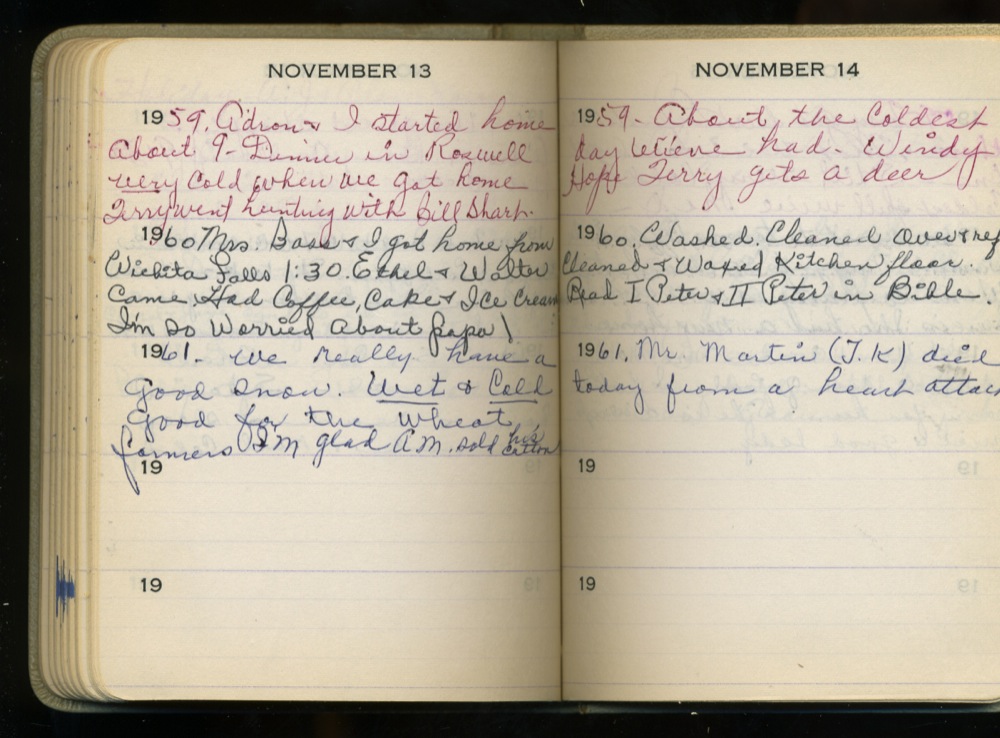 NOVEMBER 13
1959. Adron & I started home
About 9 - Dinner in Roswell
very Cold when we got home
Terry went hunting with Bill Sharp.
1960 Mrs. Bass & I got home from
Wichita Falls 1:30. Ethel & Walter
Came. Had Coffee, Cake & Ice Cream
I'm so Worried About papa!
1961. we really have a
good snow. Wet & Cold
good for the wheat
farmers I'm glad A.M. sold his cotton
19
19
NOVEMBER 14
1959 - About the Coldest
day we've had - Windy
Hope Terry gets a deer
1960. Washed. Cleaned Oven & ref
Cleaned & Waxed Kitchen floor.
Read I Peter & II Peter in Bible.
1961. Mr. Martin (J.K) died
today from a heart attac
19
19